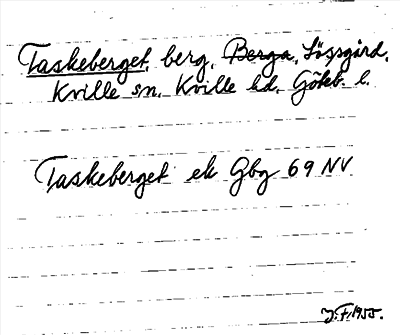 Taskeberget, berg, Berga, Lössgård,
Kville sn. Kville hd. Göteb. l.
Taskeberget ek Gbg 69 NV
J.F. 1955.